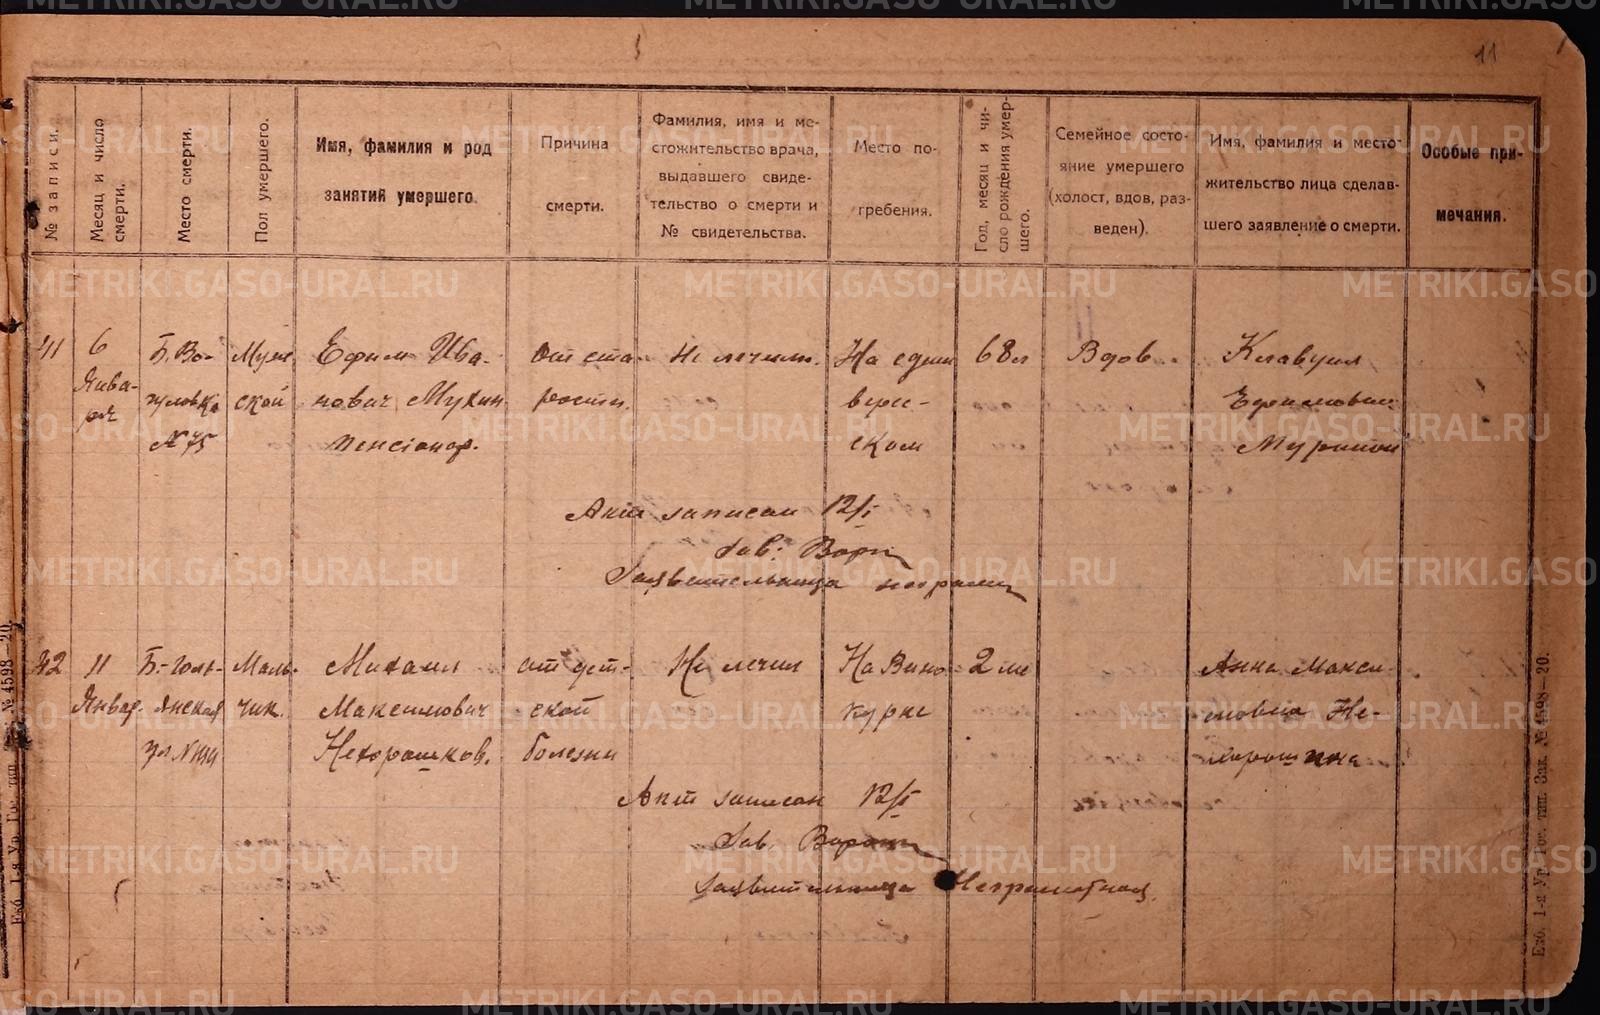 11
№ записи.
Месяц и число смерти.
Место смерти.
Пол умершего.
Имя, фамилия и род
занятий умершего.
Причина
смерти.
Фамилия, имя и ме-
стожительство врача,
выдавшего свиде-
тельство о смерти и
№ свидетельства.
Место по-
гребения.
Год, месяц и чи-
сло рождения умер-
шего.
Семейное состо-
яние умершего
(холост, вдов, раз-
веден).
Имя, фамилия и место-
жительство лица сделав-
шего заявление о смерти.
Особые при-
мечания.
41
6
Янва-
ря
Б. Во-
№ 75
Муж
ской
Ефим Ива-
нович Мухин
пенсіонер.
От ста
рости.
Не лечили.
На един
верче-
ском
68 л
Вдов
Мурина
Акт записан 12/I
Зав:
Заявительница неграм
42
11
Январ.
Б.-Голь-
янская
ул №
Маль-
чик.
Михаил
Максимович
Нехорошков.
от дет-
ской
болезни
Не лечил
На Вино
курне
2 ле
Анна Макси-
мовна Не-
Акт записан 12/I
Зав.
Заявительница Неграмотная.
Екб. 1-я Ур. Гос. тип. Зак. № 4598—20.
Екб. 1-я Ур. Гос. тип. Зак. № 4598—20.
METRIKI.GASO-URAL.RU